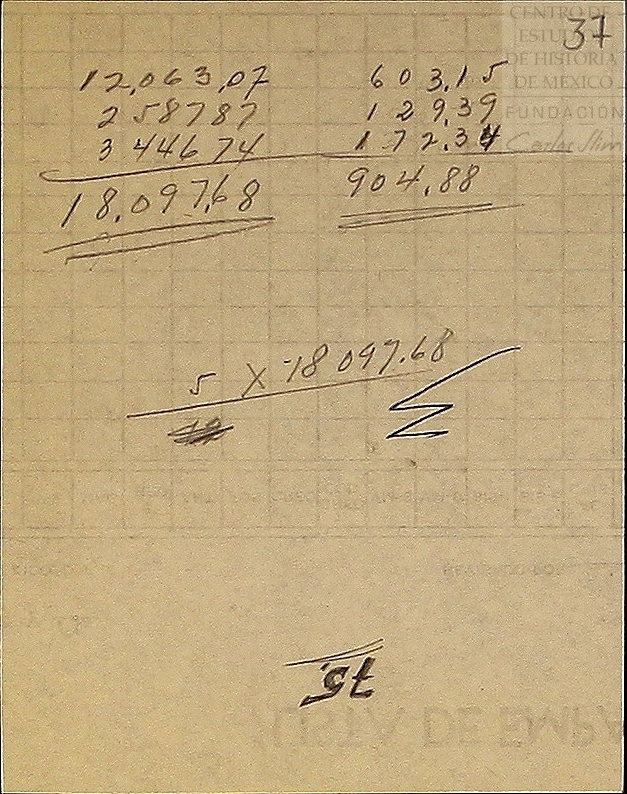 37
CENTRO DE
ESTUDIOS
DE HISTORIA
DE MEXICO
FUNDACIÓN
Carlos Slim
12,063,07
258787
344674
18.097,68
603.15
129,39
172.34
904.88
5 X 18097.68
75.
LISTA DE EMPA